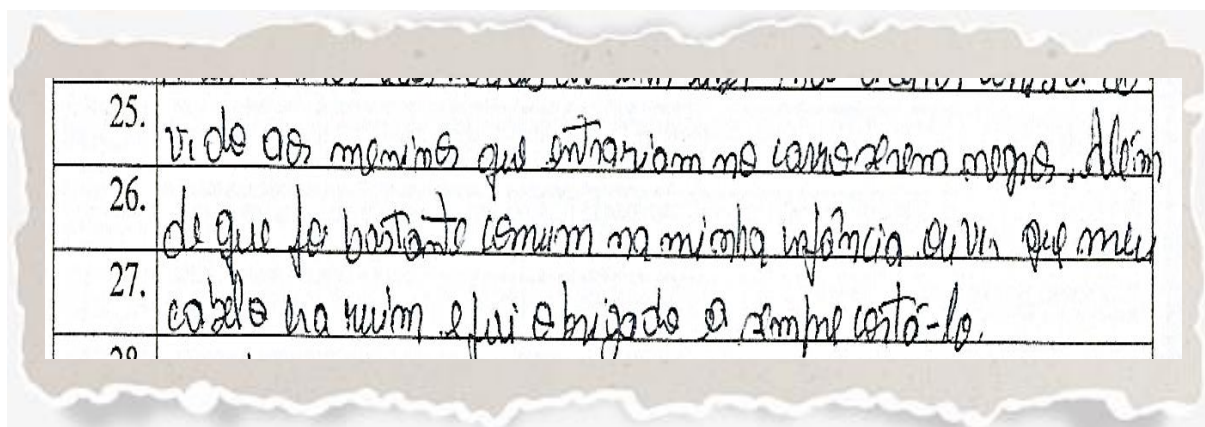 25. vido aos meninos que entrariam no carro serem negros. Além
26. de que foi bastante comum na minha infância ouvir que meu
27. cabelo era ruim e fui obrigado a sempre cortá-lo.
28.